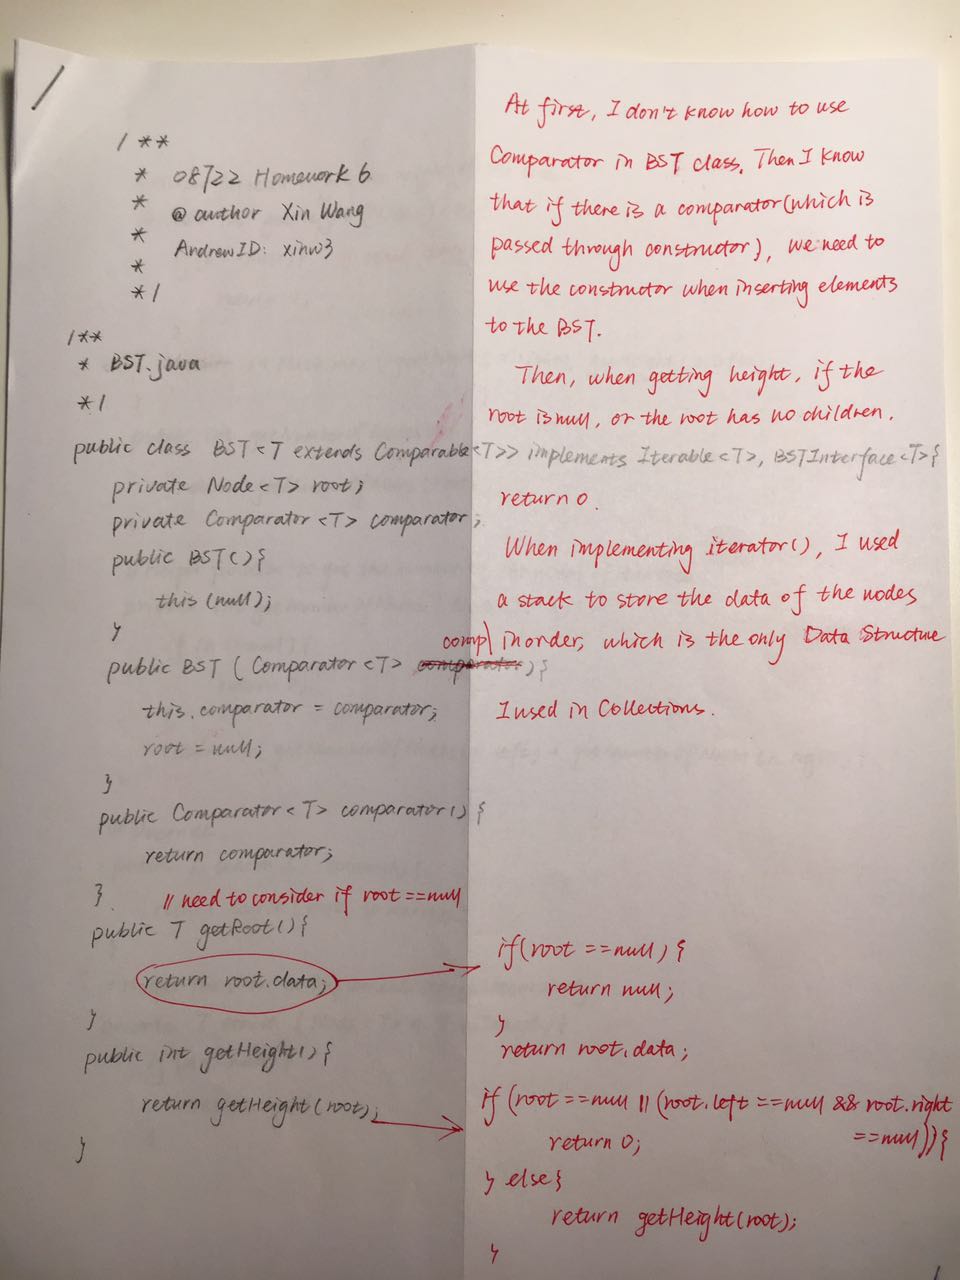 /**
* 08722 Homework 6
* @ author Xin Wang
* AndrewID: xinw3
*
*/
/**
* BST.java
*/
public class BST<T extends Comparable<T>> implements Iterable<T>, BSTInterface<T>{
private Node<T> root;
private Comparator<T> comparator;
public BST(){
this(null);
}
public BST (Comparator<T> comparator comp){
this.comparator = comparator;
root = null;
}
public Comparator<T> comparator(){
return comparator;
}
// need to consider if root==null
public T getRoot(){
return root.data;
}
public int getHeight(){
return getHeight(root);
}
At first, I don't know how to use
Comparator in BST class. Then I know
that if there is a comparator(which is
passed through constructor), we need to
use the constructor when inserting elements
to the BST.
Then, when getting height, if the
root is null, or the root has no children.
return 0.
When implementing iterator(), I used
a stack to store the data of the nodes
inorder, which is the only Data Structure
I used in Collections.
if(root ==null) {
return null;
}
return root.data;
if (root ==null || (root.left ==null && root.right
==null)){
return 0;
} else{
return getHeight(root);
}